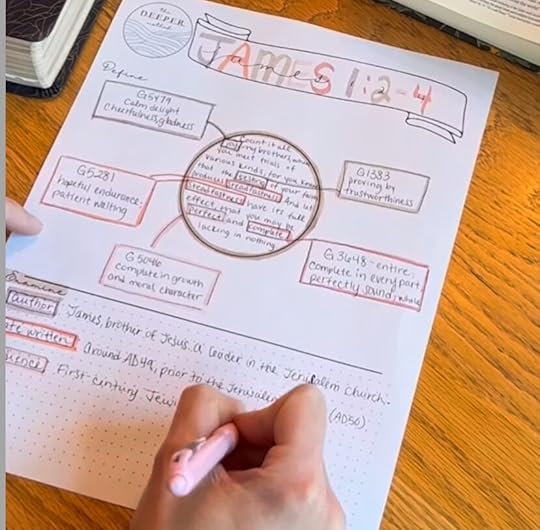 the
DEEPER
method
JAMES 1:2-4
James
Define
G5479
calm delight
cheerfulness, gladness
G5281
hopeful endurance;
patient waiting
G5046
complete in growth
and moral character
G1383
proving by
trustworthiness
G3648 - entire;
complete in every part,
perfectly sound, whole
Count it all
joy my brothers, when
you meet trials of
various kinds, for you know
that the testing of your faith
produces steadfastness. And let
steadfastness have its full
effect, that you may be
perfect and complete,
lacking in nothing
Examine
author James, brother of Jesus. a leader in the Jerusalem church.
written Around AD49, prior to the Jerusalem (AD50)
First-century Jewi